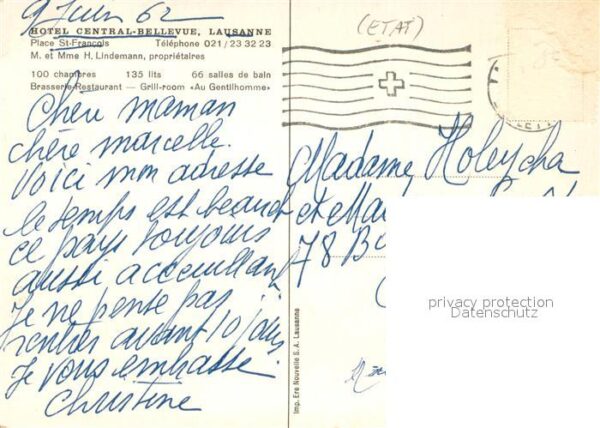 9 Juin 62
HOTEL CENTRAL-BELLEVUE, LAUSANNE
Place St-François Téléphone 021/23 32 23
M. et Mme H. Lindemann, propriétaires
100 chambres 135 lits 66 salles de bain
Brasserie-Restaurant — Grill-room «Au Gentilhomme»
Chère maman
chère marcelle.
Voici mon adresse
le temps est beau et
ce pays toujours
aussi acceuillant
Je ne pense pas
rentrer avant 10 jours
Je vous embrasse.
Christine
(ETAT)
Madame
et
78
Imp. Ere Nouvelle S. A. Lausanne
privacy protection
Datenschutz